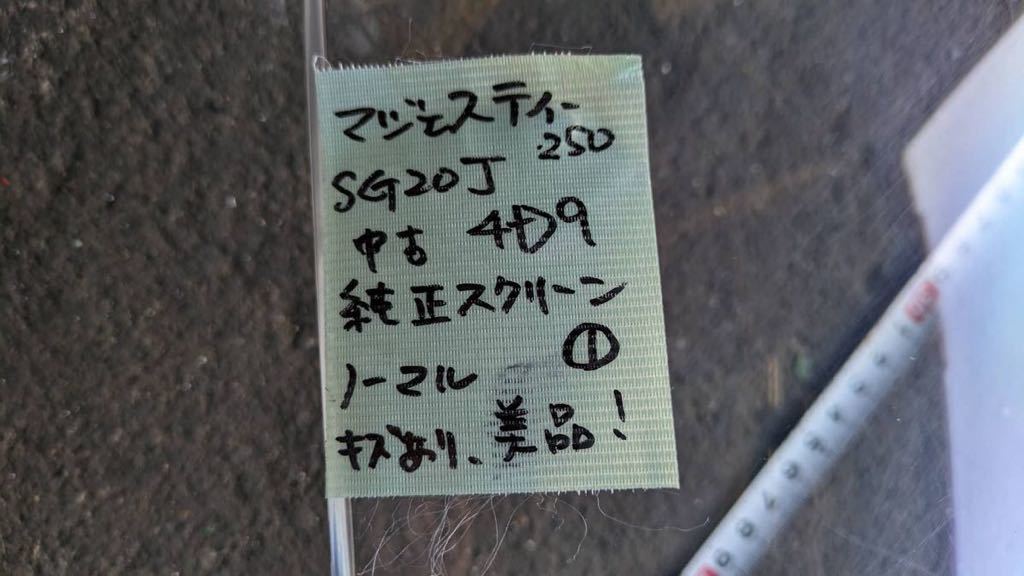 マジェスティー
250
SG20J
中古 4D9
純正スクリーン
①
ノーマル
キズあり、美品!